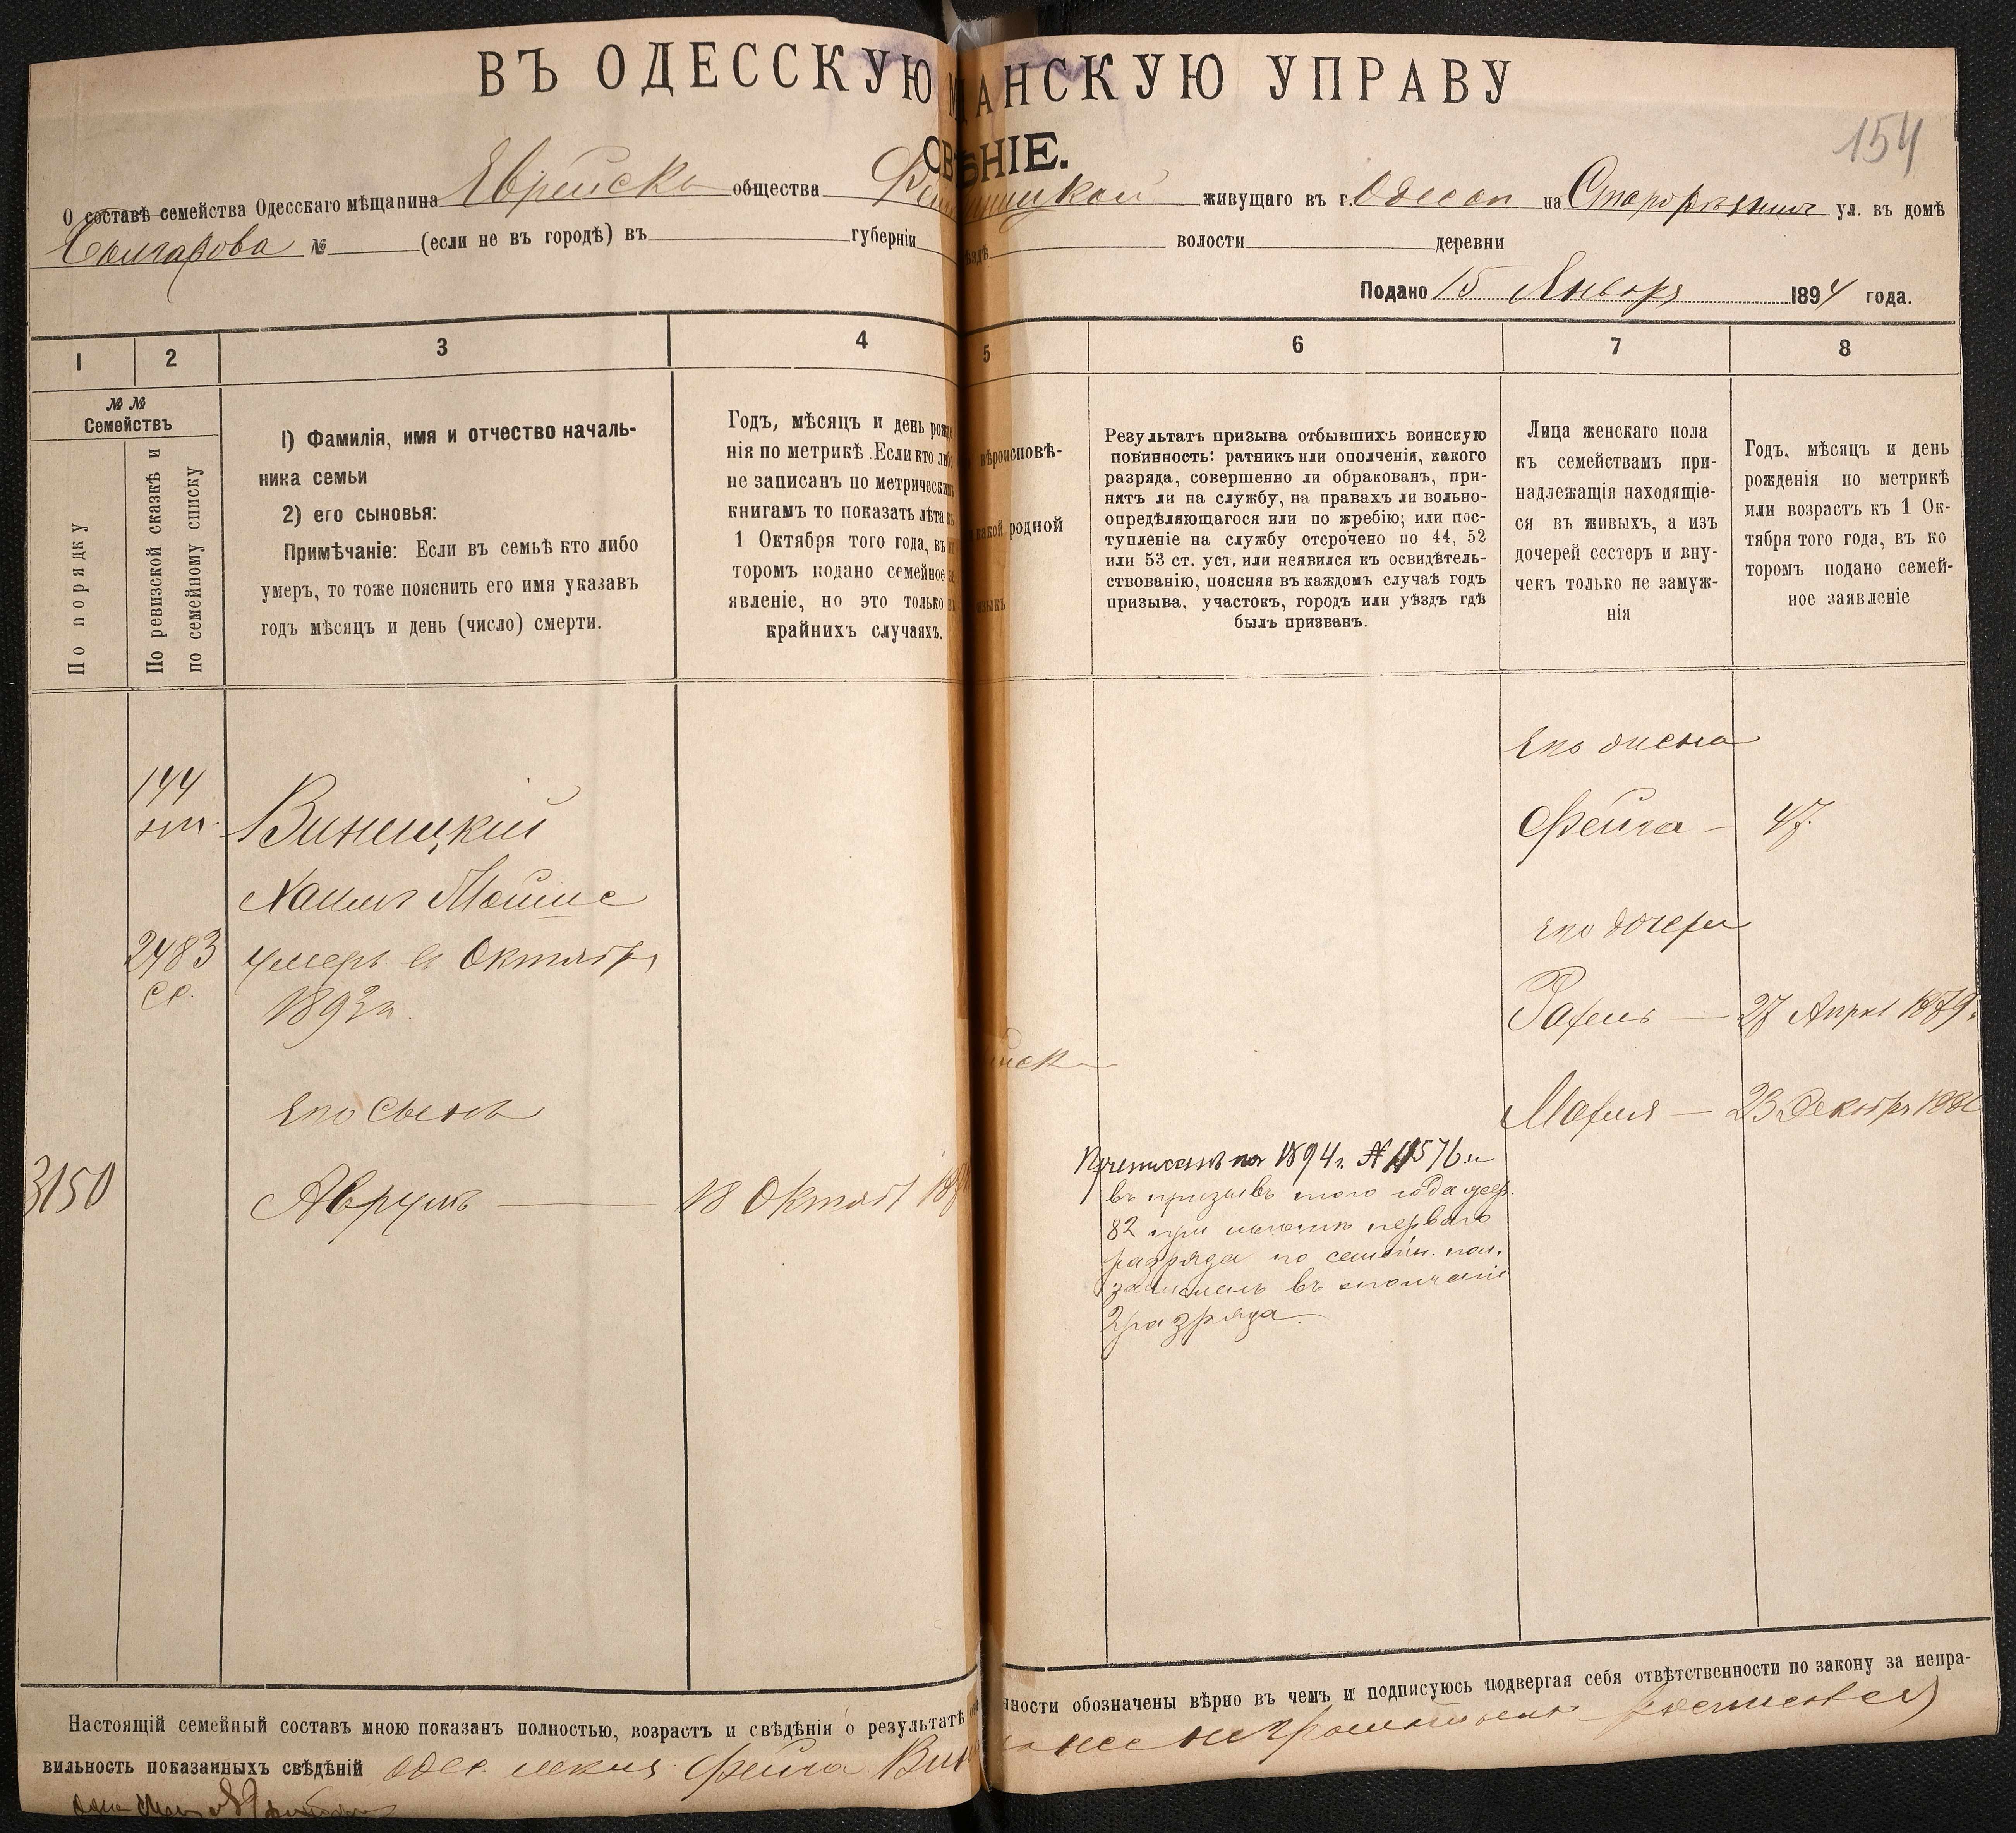 ВЪ ОДЕССКУЮ М АНСКУЮ УПРАВУ
СВѢ НІЕ.
154
О составѣ семейства Одесскаго мѣщанина Еврейска общества живущаго въ г. Одессѣ на ул. въ домѣ
Болгарова № (если не въ городѣ) въ губерніи ѣздѣ волости деревни
Подано 15 Января 1894 года.
1 2 3 4 5 6 7 8
№№
Семействъ
По порядку
По ревизской сказкѣ и
по семейному списку
1) Фамилія, имя и отчество началь-
ника семьи
2) его сыновья:
Примѣчаніе: Если въ семьѣ кто либо
умеръ, то тоже пояснить его имя указавъ
годъ мѣсяцъ и день (число) смерти.
Годъ, мѣсяцъ и день рожде
нія по метрикѣ. Если кто либо
не записанъ по метрическимъ
книгамъ то показать лѣта къ
1 Октября того года, въ ко
торомъ подано семейное за
явленіе, но это только въ
крайнихъ случаяхъ.
вѣроисповѣ-
какой родной
языкъ
Результатъ призыва отбывшихъ воинскую
повинность: ратникъ или ополченія, какого
разряда, совершенно ли обракованъ, при-
нятъ ли на службу, на правахъ ли вольно-
опредѣляющагося или по жребію; или пос-
тупленіе на службу отсрочено по 44, 52
или 53 ст. уст. или неявился къ освидѣтель-
ствованію, поясняя въ каждомъ случаѣ годъ
призыва, участокъ, городъ или уѣздъ гдѣ
былъ призванъ.
Лица женскаго пола
къ семействамъ при-
надлежащія находящіе-
ся въ живыхъ, а изъ
дочерей сестеръ и вну-
чекъ только не замуж-
нія
Годъ, мѣсяцъ и день
рожденія по метрикѣ
или возрастъ къ 1 Ок-
тября того года, въ ко
торомъ подано семей-
ное заявленіе
Его жена
144
Винницкій
Фейга — 47.
Хаимъ Мошке
его дочери
2483
умеръ Октября
1893 г.
Рахель — 27 Апрѣл 1879
ск
его сынъ
Махля — 23 Декабря 188
3150
Аврумъ — 18 Октяб 187
Приписанъ по 1894 г. № 11576 и
въ призывъ того года
82 при льготѣ перваго
разряда по семейн. пол.
зачисленъ въ ополченіе
2 разряда.
Настоящій семейный составъ мною показанъ полностью, возрастъ и свѣдѣнія о результатѣ нности обозначены вѣрно въ чемъ и подписуюсь подвергая себя отвѣтственности по закону за непра-
вильность показанныхъ свѣдѣній Одес. Фейга Вин за нее неграмотную росписался